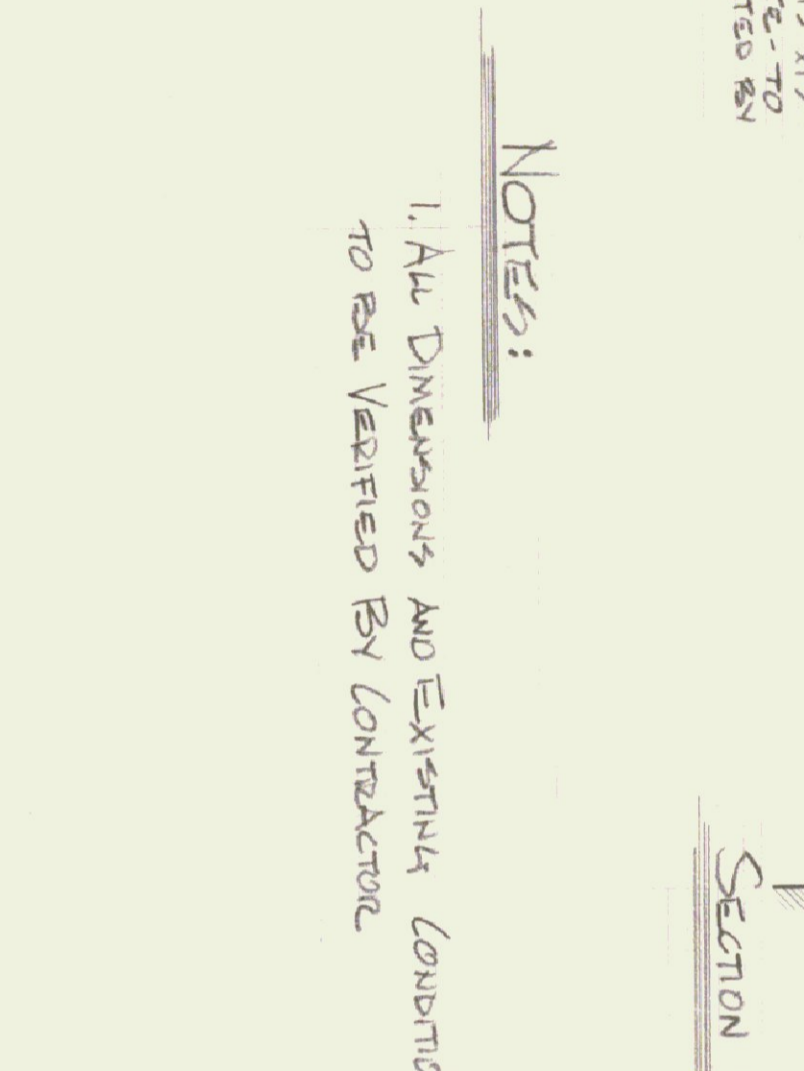 TO
TED BY
SECTION
NOTES:
1. ALL DIMENSIONS AND EXISTING CONDITIO
TO BE VERIFIED BY CONTRACTOR